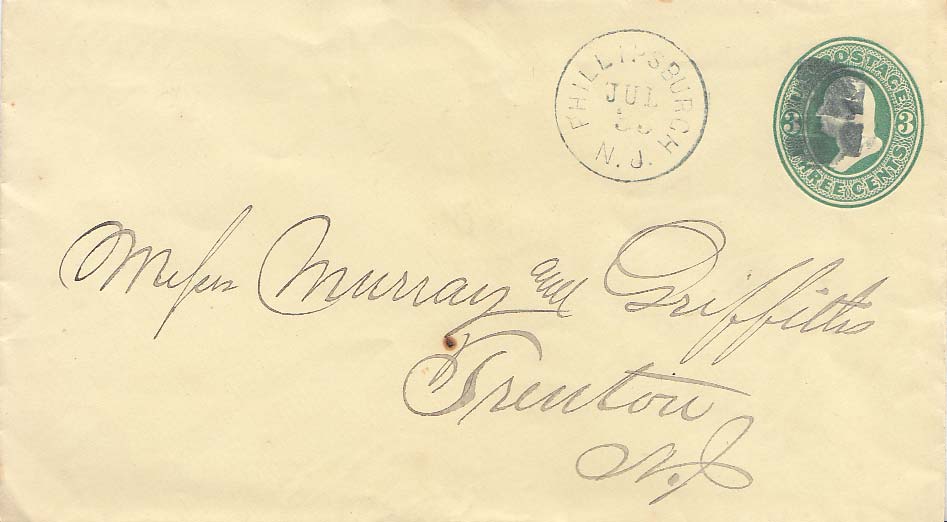 PHILLIPSBURGH
JUL
30
N.J.
U.S. POSTAGE
3 3
THREE CENTS
Messrs Murray and Griffiths
Trenton
N.J.